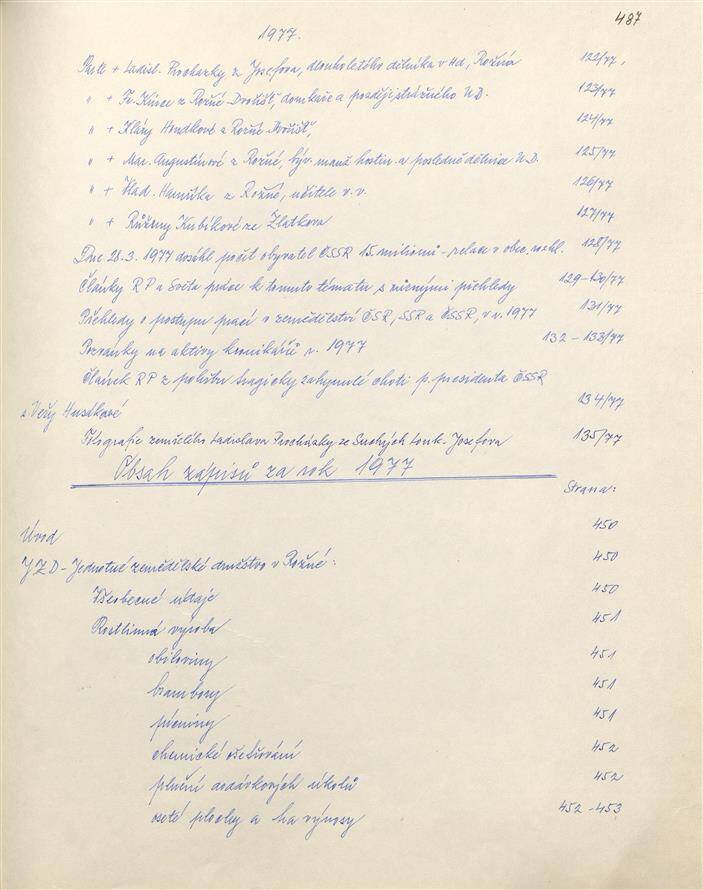 487
1977.
+ Ladisl. Procházky z Josefova, dlouholetého dělníka v Rožná 122/77.
" + Fr. z Rožné Dvořišť, domkaře a později strážného U.D. 123/77
" + Kláry z Rožné Dvořišť, 124/77
" + Mar. Augustinové z Rožné, býv. manž. hostin. a posledně dělnice U.D. 125/77
" + Vlad. Hamříka z Rožné, učitele v.v. 126/77
" + Růženy Kubíkové ze Zlatkova 127/77
Dne 28.3.1977 dosáhl počet obyvatel ČSSR 15. milionů - relace v obec. rozhl. 128/77
Články RP a Světa práce k tomuto tématu s různými přehledy 129-130/77
Přehledy o postupu prací v zemědělství ČSR, SSR a ČSSR, v r. 1977 131/77
Pozvánky na aktivy kronikářů r. 1977 132 - 133/77
Článek RP z pohřbu tragicky zahynulé choti p. presidenta ČSSR
s. Věry Husákové 134/77
Fotografie zemřelého Ladislava Procházky ze Suchých Louk - Josefova 135/77
Obsah zápisů za rok 1977
Strana:
Úvod 450
JZD - Jednotné zemědělské družstvo v Rožné: 450
Všeobecné údaje 450
Rostlinná výroba 451
obiloviny 451
brambory 451
pícniny 451
chemické ošetřování 452
plnění dodávkových úkolů 452
oseté plochy a ha výnosy 452 - 453